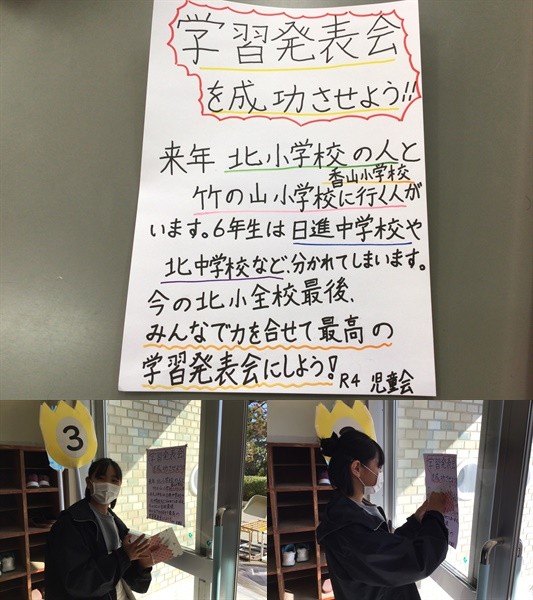 学習発表会
を成功させよう!!
来年 北小学校の人と
香山小学校
竹の山小学校に行く人が
います。6年生は日進中学校や
北中学校など、分かれてしまいます。
今の北小全校最後、
みんなで力を合せて最高の
学習発表会にしよう!
R4 児童会
3
学習発表会
を成功させよう!!
学習発表会